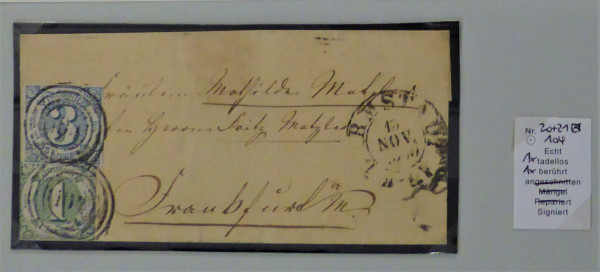 3
1
Fräulein Mathilde Metzler
Herrn Fritz Metzler
Frankfurt a/M.
NOV.
Nr. 20+21
104
Echt
1x tadellos
1x berührt
angeschnitten
Mängel
Repariert
Signiert